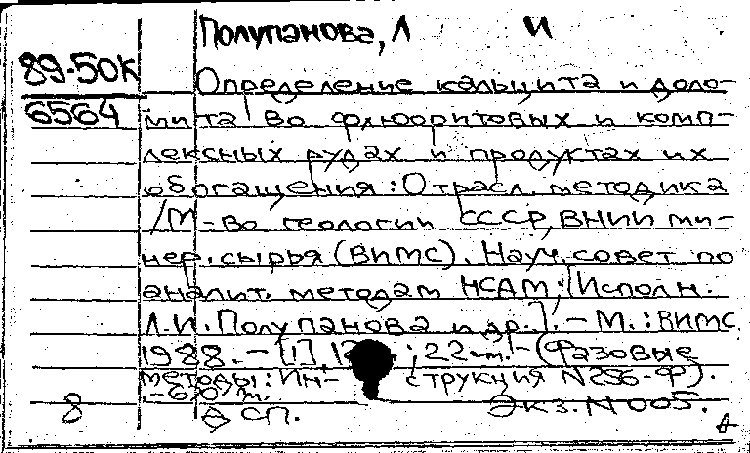 Полупанова, Л И
89-50К
6564
Определение кальцита и доло-
мита во флюоритовых и комп-
лексных рудах и продуктах их
обогащения: Отрасл. методика
/М-во геологии СССР, ВНИИ ми-
нер. сырья (ВИМС). Науч. совет по
аналит. методам НСАМ; [Исполн.
Л.И. Полупанова и др.]. - М.: ВИМС
1988. - [1], ; 22 - (Фазовые
методы: Ин- струкция N 256-Ф).
8 СП. Экз. N 005.